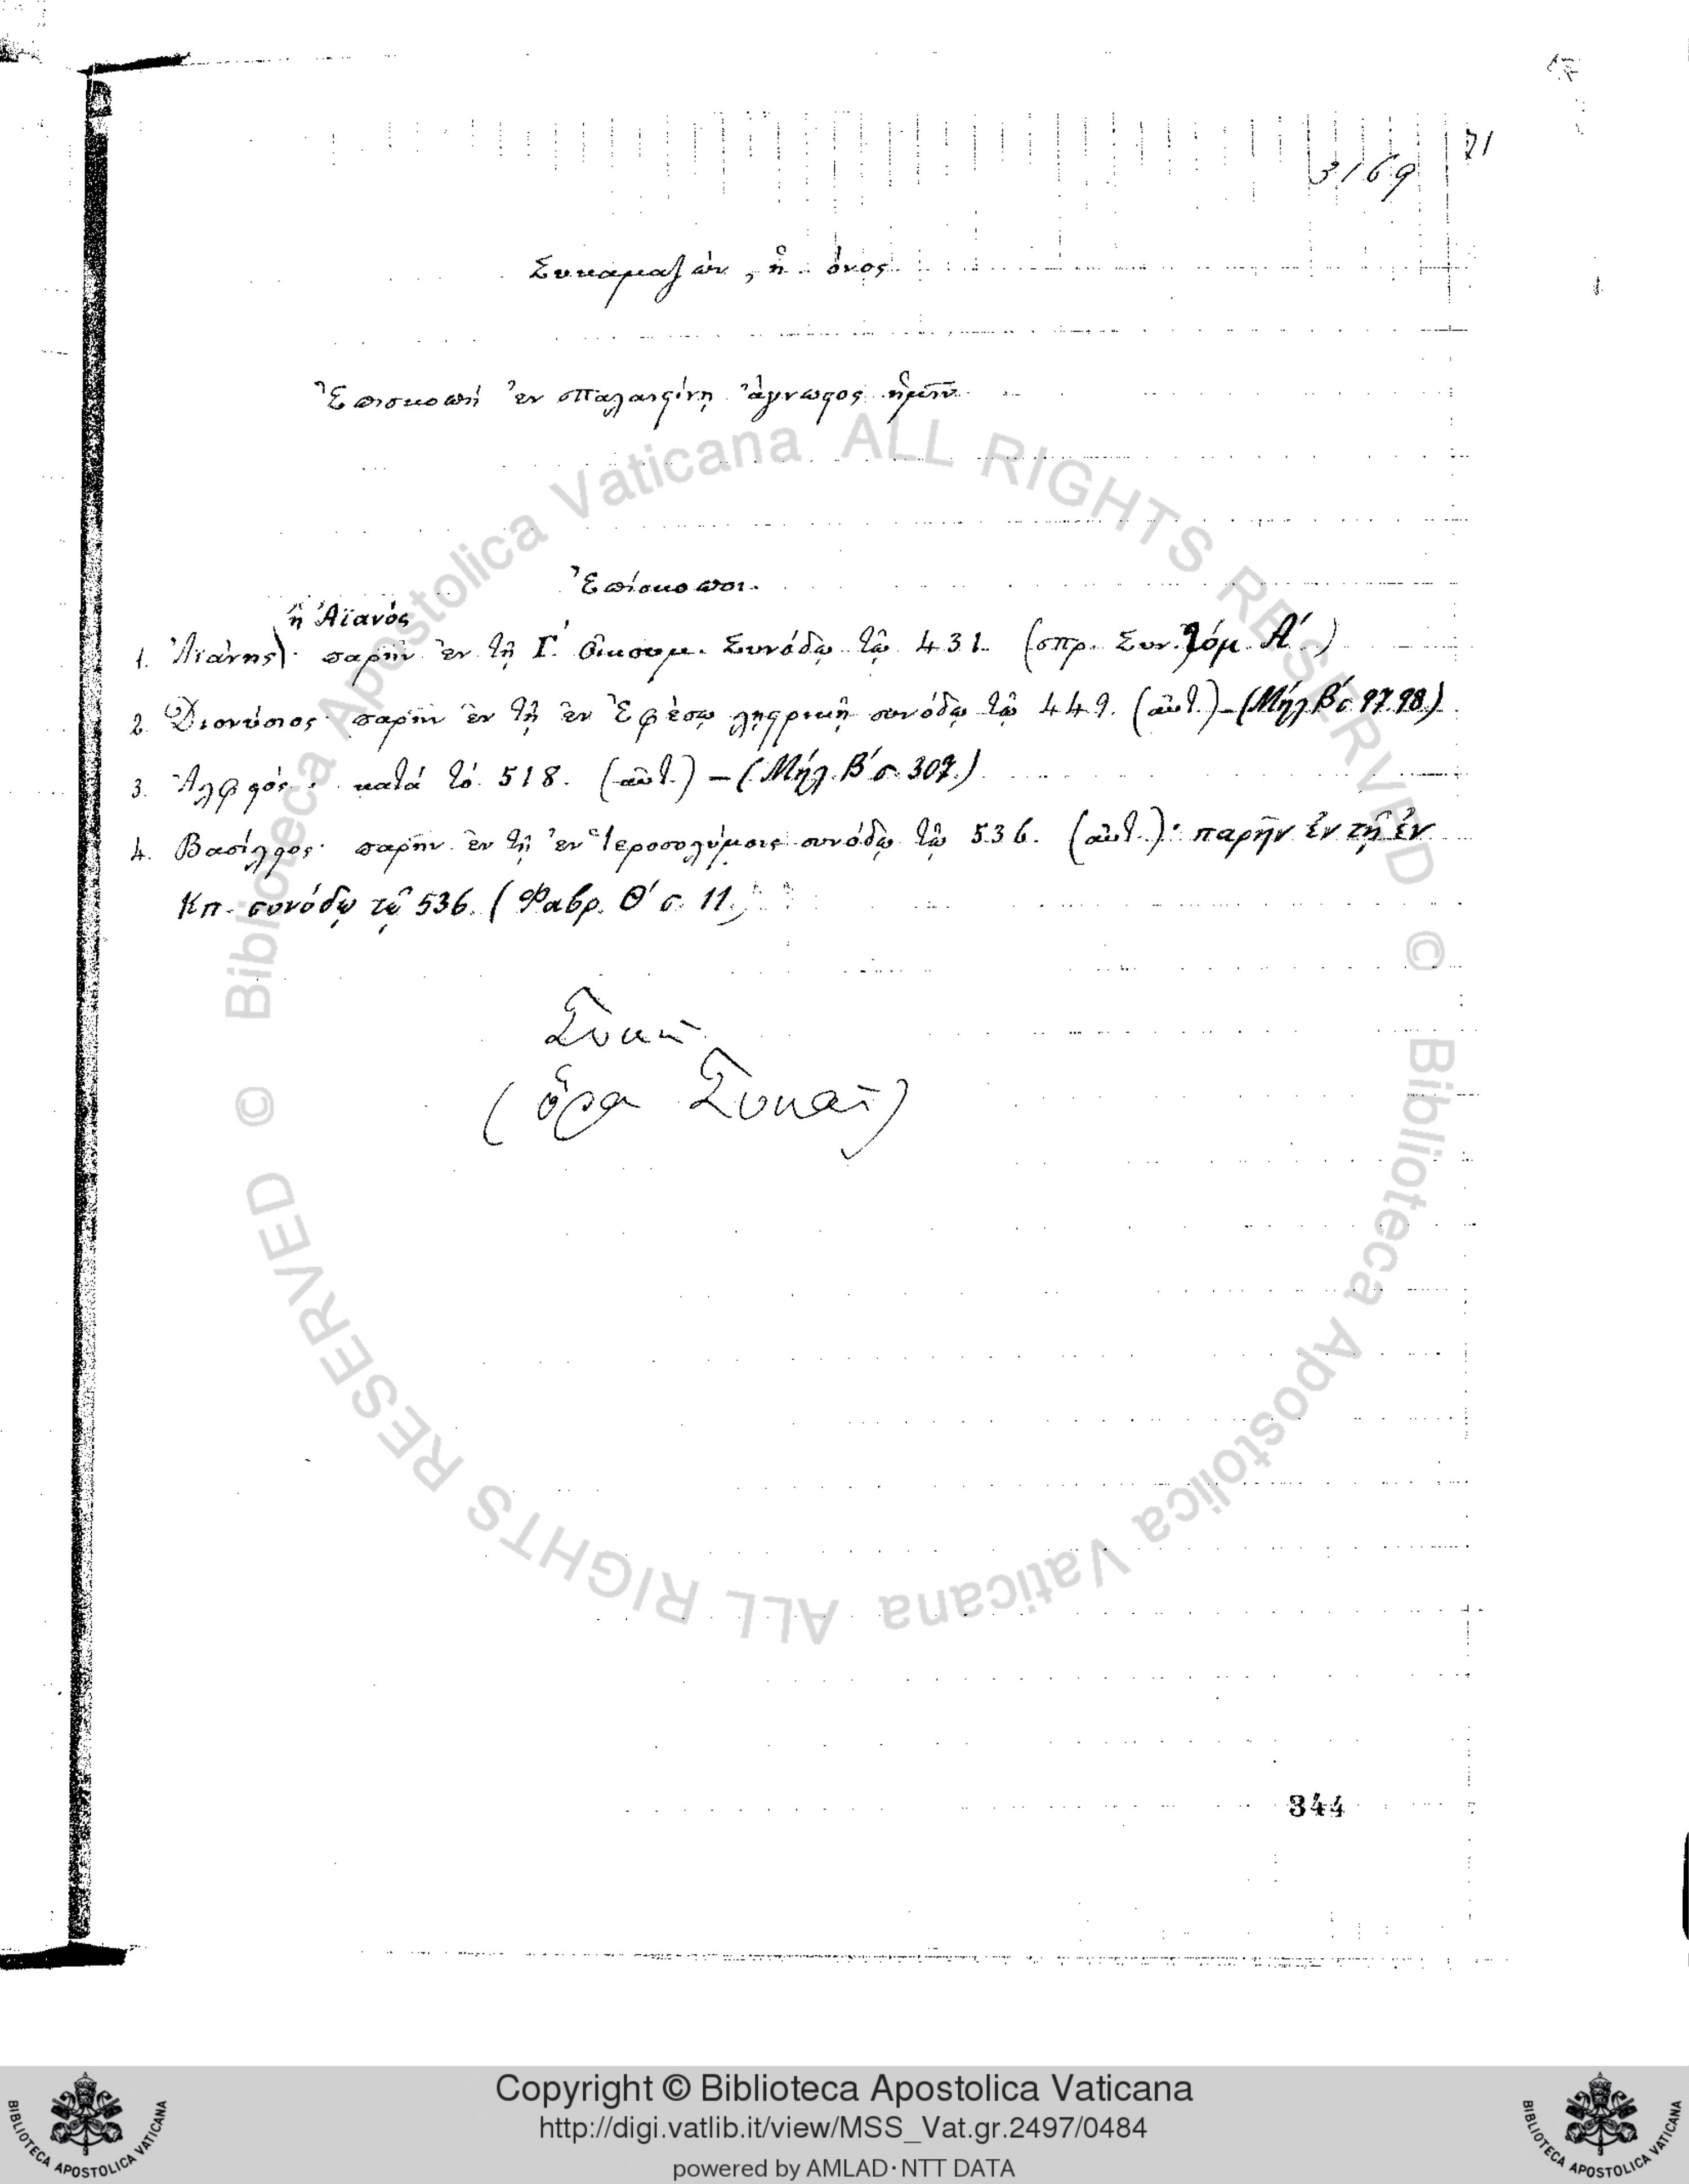 71
3169
Συκαμαζών, ἢ ὄνος
Ἐπισκοπὴ ἐν Παλαιστίνῃ ἄγνωστος ἡμῖν
Ἐπίσκοποι.
ἢ Ἀϊανός
1. Ἀϊάνης). παρῆν ἐν τῇ Γ΄. Οἰκουμ. Συνόδῳ τῷ 431. (πρ. Συν. τόμ. Α΄)
2. Διονύσιος· παρῆν ἐν τῇ ἐν Ἐφέσῳ λῃστρικῇ συνόδῳ τῷ 449. (αὐτ.) - (Μήλ. Β΄ σ. 97. 98.)
3. κατὰ τὸ 518. (αὐτ.) - (Μήλ. Β΄ σ. 307.)
4. Βασίλειος· παρῆν ἐν τῇ ἐν Ἱεροσολύμοις συνόδῳ τῷ 536. (αὐτ.)· παρῆν ἐν τῇ ἐν
Κπ. συνόδῳ τῷ 536. (Φαβρ. Θ΄ σ. 11.
Συκαῖ
(ὅρα Συκαί)
344
© Biblioteca Apostolica Vaticana ALL RIGHTS RESERVED
© Biblioteca Apostolica Vaticana ALL RIGHTS RESERVED
Copyright © Biblioteca Apostolica Vaticana
http://digi.vatlib.it/view/MSS_Vat.gr.2497/0484
powered by AMLAD·NTT DATA
BIBLIOTECA APOSTOLICA VATICANA
BIBLIOTECA APOSTOLICA VATICANA